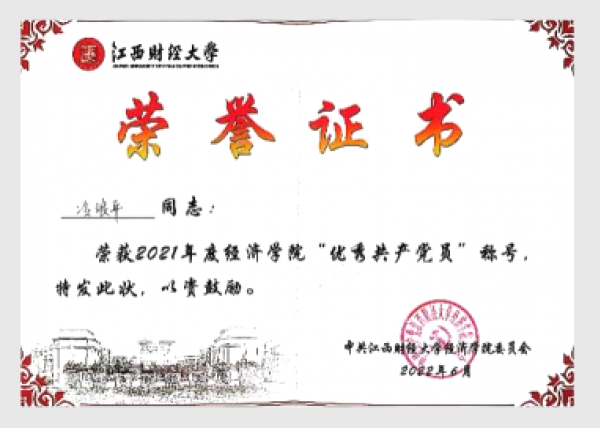 江西财经大学
荣誉证书
同志：
荣获2021年度经济学院“优秀共产党员”称号，
特发此状，以资鼓励。
中共江西财经大学经济学院委员会
2022年6月